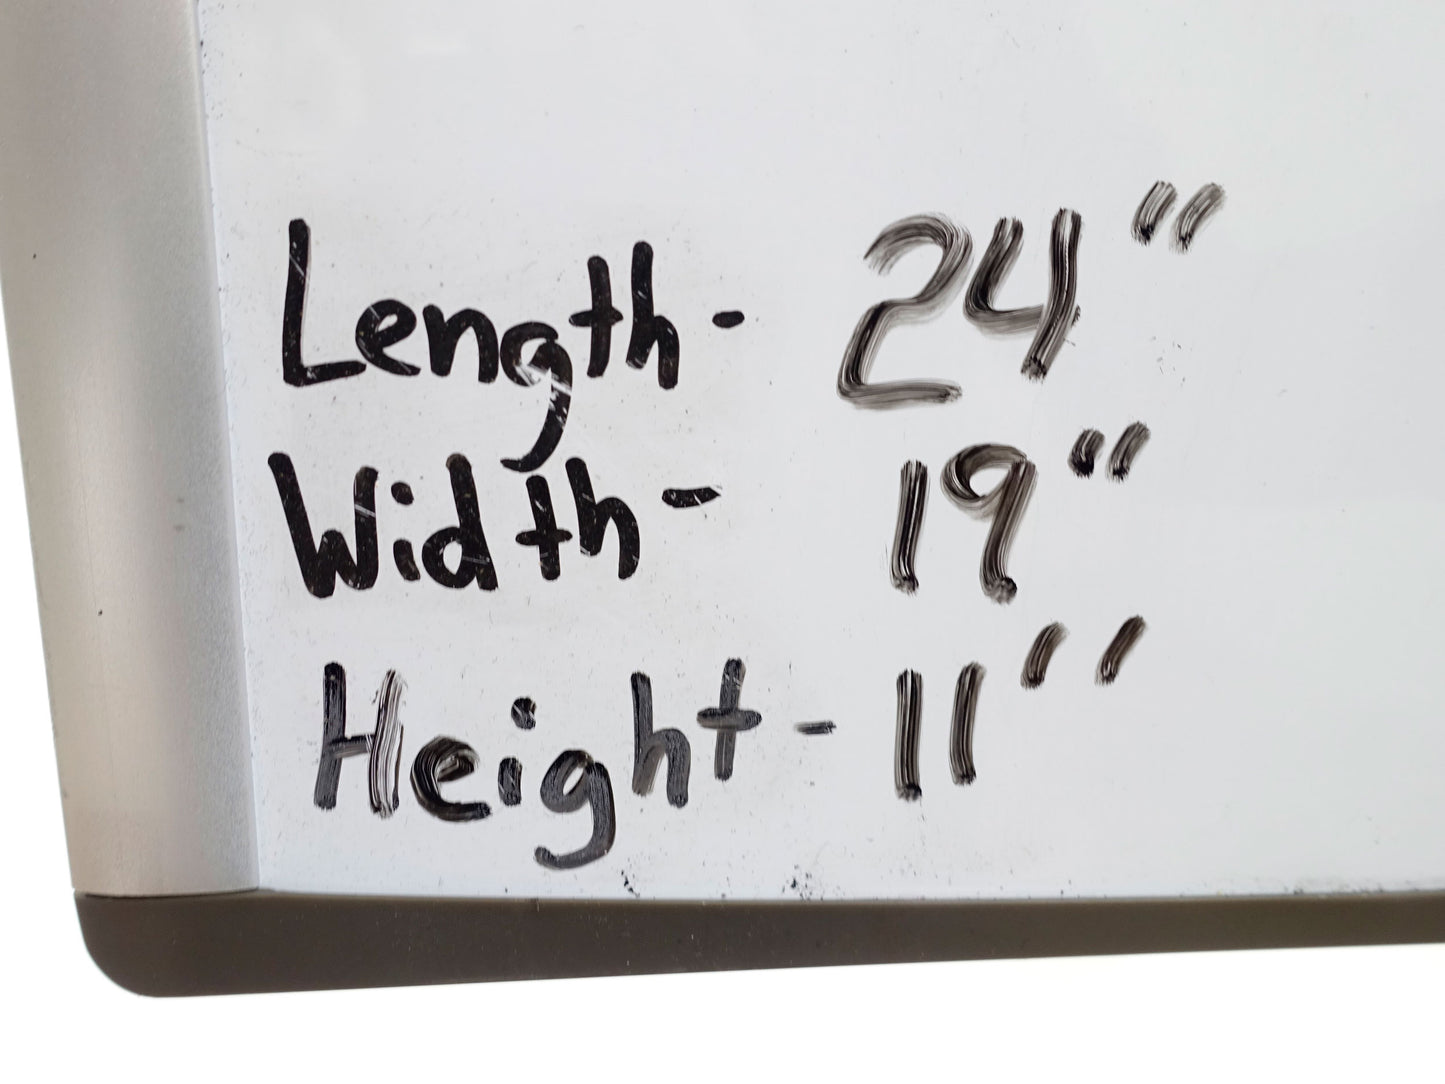 Length - 24"
Width - 19"
Height - 11"